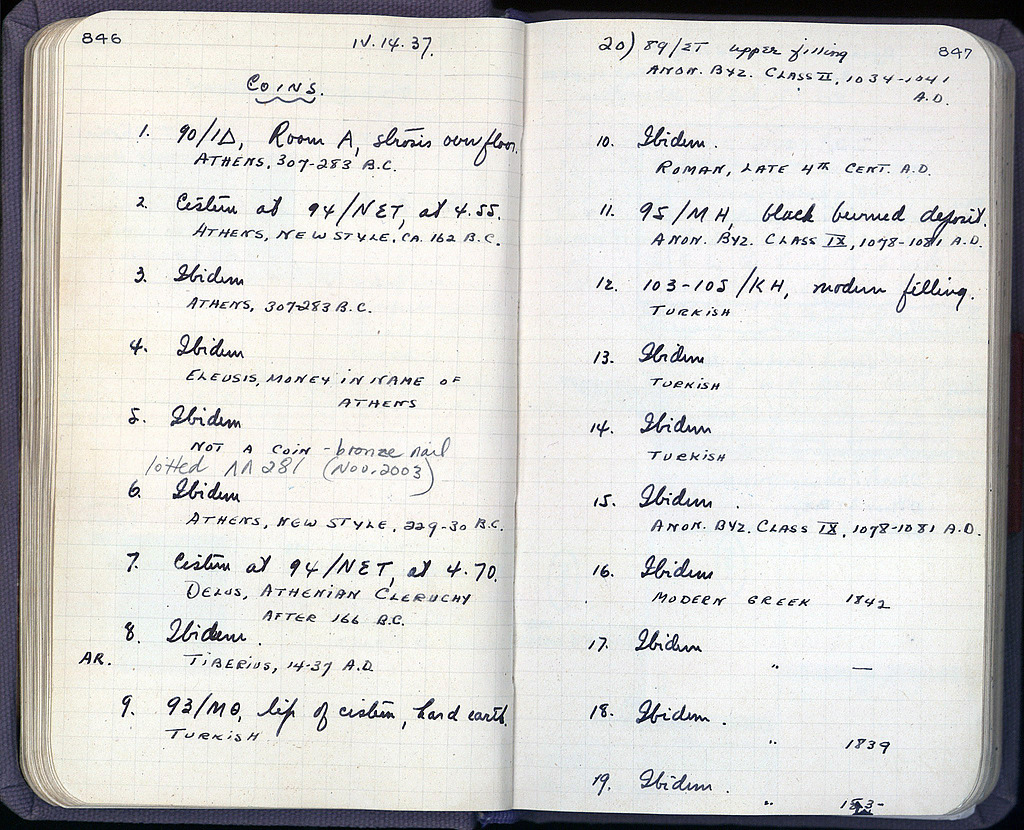 846
IV.14.37.
COINS.
1. 90/ΙΔ, Room A, strosis over floor.
ATHENS, 307-283 B.C.
2. Cistern at 94/ΝΣΤ, at 4.55.
ATHENS, NEW STYLE, CA. 162 B.C.
3. Ibidem
ATHENS, 307-283 B.C.
4. Ibidem
ELEUSIS, MONEY IN NAME OF
ATHENS
5. Ibidem
NOT A COIN - bronze nail
lotted ΛΛ 281 (Nov. 2003)
6. Ibidem
ATHENS, NEW STYLE, 229-30 B.C.
7. Cistern at 94/ΝΣΤ, at 4.70.
DELOS, ATHENIAN CLERUCHY
AFTER 166 B.C.
8. Ibidem.
AR. TIBERIUS, 14-37 A.D.
9. 93/ΜΘ, lip of cistern, hard earth.
TURKISH
847
20) 89/ΣΤ upper filling
ANON. BYZ. CLASS II, 1034-1041
A.D.
10. Ibidem.
ROMAN, LATE 4TH CENT. A.D.
11. 95/ΜΗ, black burned deposit.
ANON. BYZ. CLASS IX, 1078-1081 A.D.
12. 103-105/ΚΗ, modern filling.
TURKISH
13. Ibidem
TURKISH
14. Ibidem
TURKISH
15. Ibidem.
ANON. BYZ. CLASS IX, 1078-1081 A.D.
16. Ibidem
MODERN GREEK 1842
17. Ibidem
" —
18. Ibidem.
" 1839
19. Ibidem.
" 183-